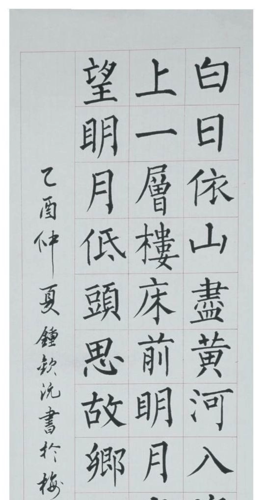 白日依山盡黃河入
上一層樓床前明月
望明月低頭思故鄉
乙酉仲夏鍾欽沅書於梅